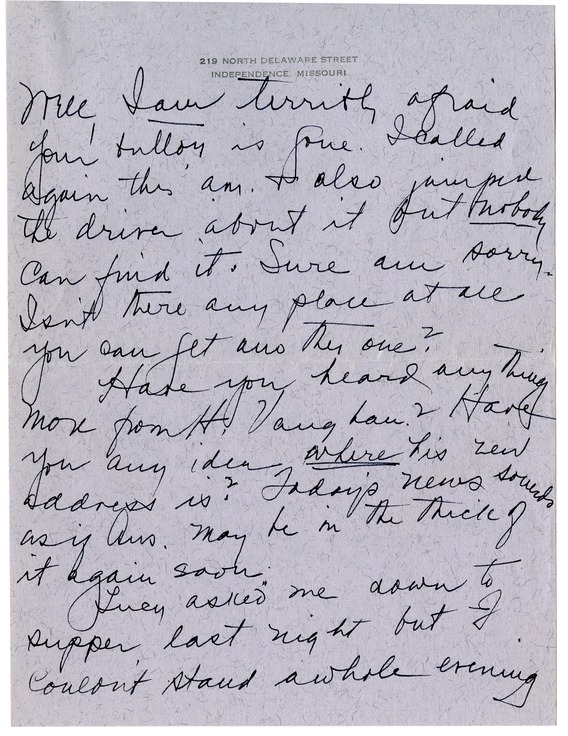 219 NORTH DELAWARE STREET
INDEPENDENCE, MISSOURI
Well, I am terribly afraid
your button is gone. I called
again this am. & also jumped
the driver about it but nobody
can find it. Sure am sorry.
Isn't there any place at all
you can get another one?
Have you heard anything
more from H. Vaughan? Have
you any idea where his new
address is? Today's news sounds
as if Aus. may be in the thick of
it again soon.
Lucy asked me down to
supper last night but I
couldn't stand a whole evening